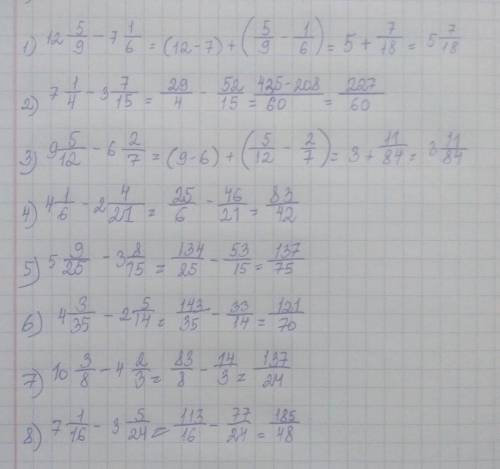 1) 12 5/9 - 7 1/6 = (12-7) + (5/9 - 1/6) = 5 + 7/18 = 5 7/18
2) 7 1/4 - 3 7/15 = 29/4 - 52/15 = 425-208/60 = 227/60
3) 9 5/12 - 6 2/7 = (9-6) + (5/12 - 2/7) = 3 + 11/84 = 3 11/84
4) 4 1/6 - 2 4/21 = 25/6 - 46/21 = 83/42
5) 5 9/25 - 3 8/15 = 134/25 - 53/15 = 137/75
6) 4 3/35 - 2 5/14 = 143/35 - 33/14 = 121/70
7) 10 3/8 - 4 2/3 = 83/8 - 14/3 = 137/24
8) 7 1/16 - 3 5/24 = 113/16 - 77/24 = 185/48